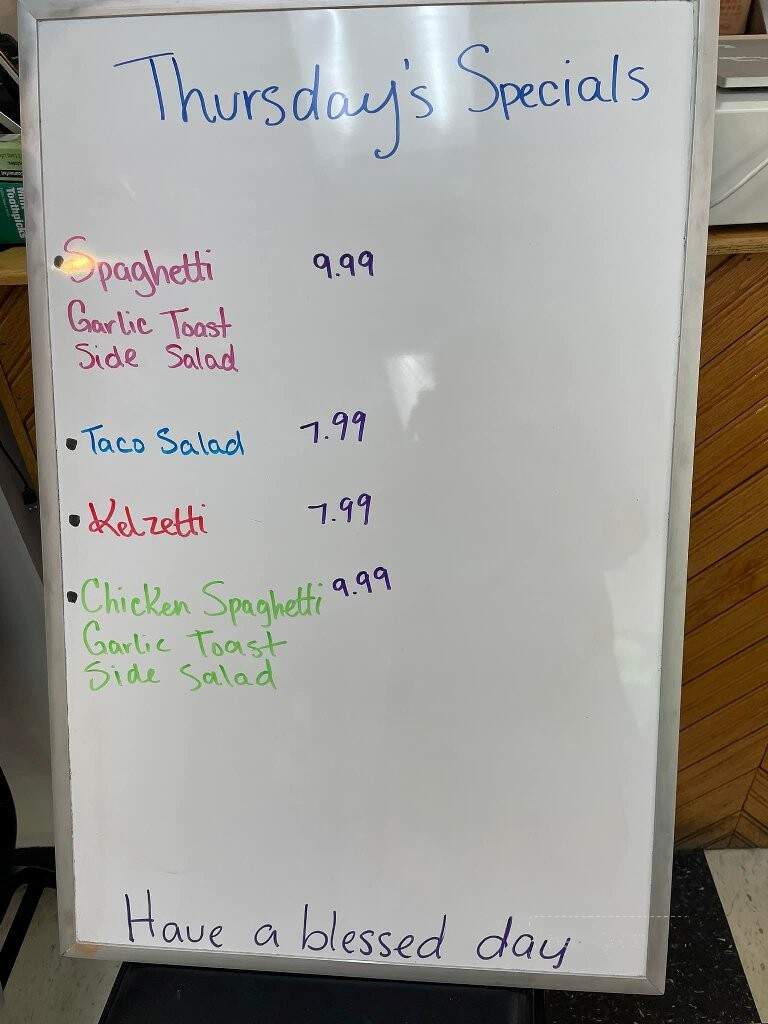 Thursday's Specials
• Spaghetti 9.99
Garlic Toast
Side Salad
• Taco Salad 7.99
• Kelzetti 7.99
• Chicken Spaghetti 9.99
Garlic Toast
Side Salad
Have a blessed day
Toothpicks